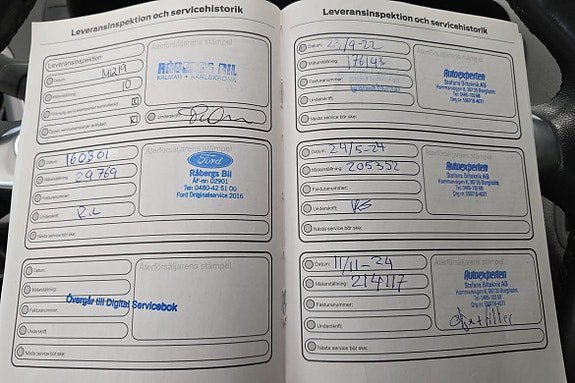 Leveransinspektion och servicehistorik
Leveransinspektion
Datum:
Mätarställning:
10
Återförsäljarens stämpel
RÅBERGS BIL
KALMAR • KARLSKRONA
Underskrift:
Datum:
160301
Mätarställning:
29769
Fakturanummer:
Underskrift:
Nästa service bör ske:
Återförsäljarens stämpel
Ford
Råbergs Bil
ÅF-nr: 02901
Tel: 0480-42 51 00
Ford Originalservice 2016
Datum:
Mätarställning:
Fakturanummer:
Underskrift:
Nästa service bör ske:
Återförsäljarens stämpel
Övergår till Digital Servicebok
Leveransinspektion och servicehistorik
Datum:
23/9-22
Mätarställning:
176143
Fakturanummer:
Underskrift:
Nästa service bör ske:
Återförsäljarens stämpel
Autoexperten
Stefans Bilteknik AB
Datum:
24/5-24
Mätarställning:
205352
Fakturanummer:
Underskrift:
Nästa service bör ske:
Återförsäljarens stämpel
Autoexperten
Stefans Bilteknik AB
Datum:
11/11-24
Mätarställning:
214117
Fakturanummer:
Underskrift:
Nästa service bör ske:
Återförsäljarens stämpel
Autoexperten
Stefans Bilteknik AB